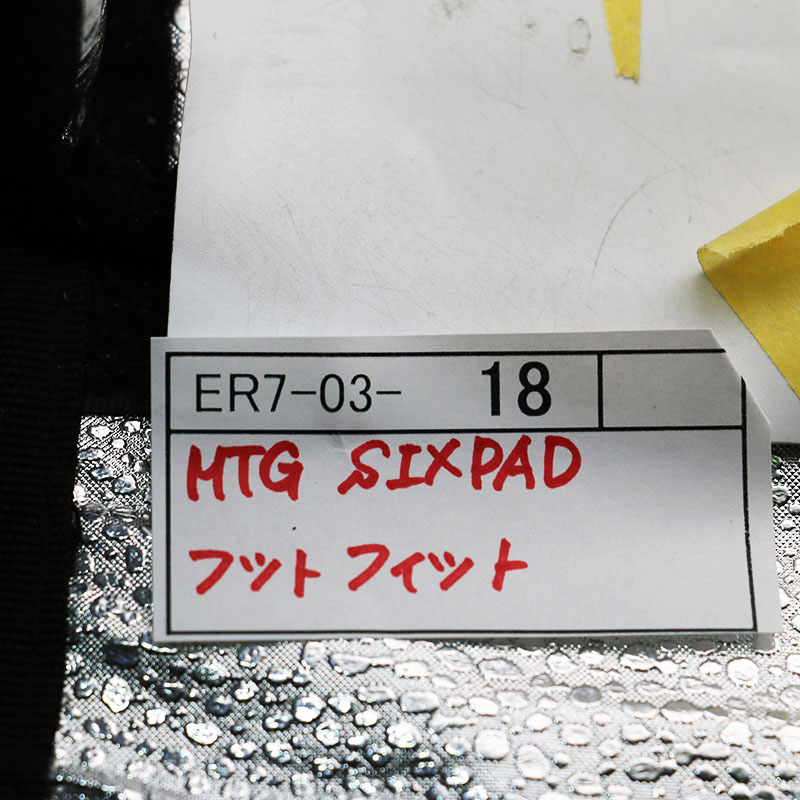 ER7-03- 18
MTG SIXPAD
フットフィット